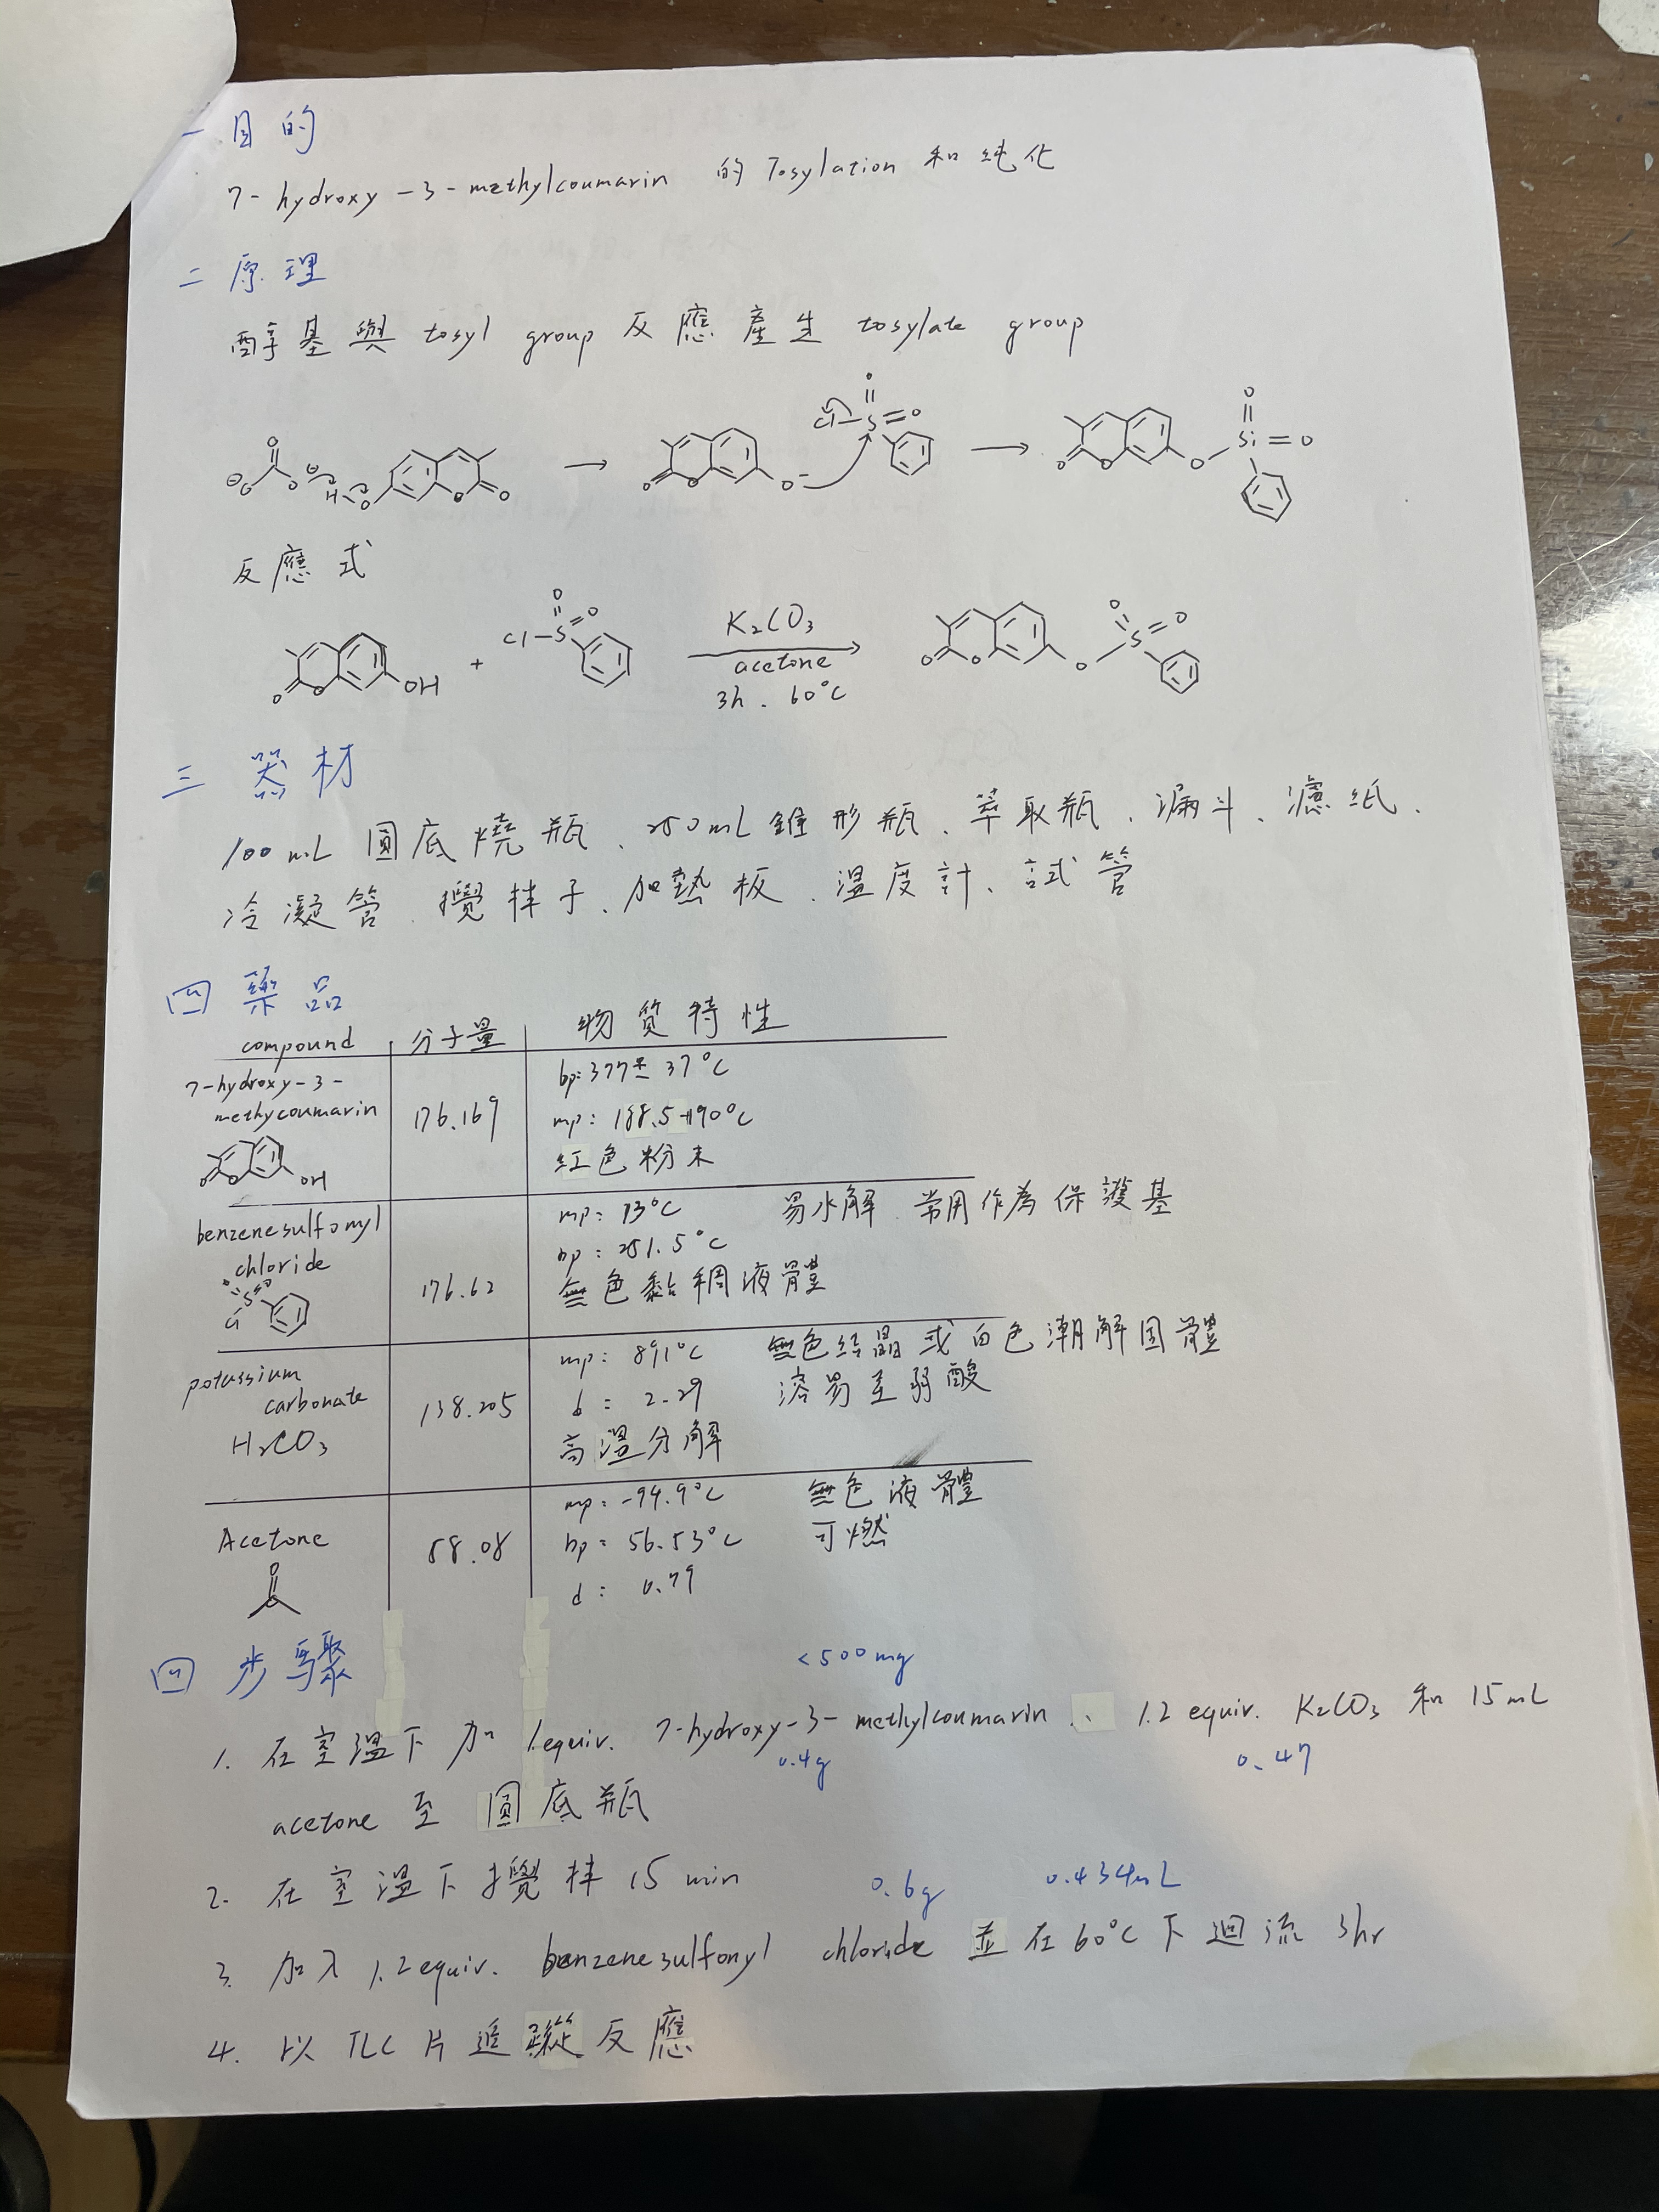 一 目的
7-hydroxy-3-methylcoumarin 的 Tosylation 和純化
二 原理
醇基與 tosyl group 反應產生 tosylate group
O O Cl-S=O O
O O H O O O O O- O O O Si=O
反應式
O O OH + Cl-S O O K2CO3 acetone 3h. 60°C O O O S O O
三 器材
100 mL 圓底燒瓶、250mL 錐形瓶、萃取瓶、漏斗、濾紙、
冷凝管、攪拌子、加熱板、溫度計、試管
四 藥品
compound 分子量 物質特性
7-hydroxy-3-
methycoumarin
O O OH
176.169
bp: 377± 37°C
mp: 188.5-190°C
紅色粉末
benzenesulfonyl
chloride
O S O Cl
176.62
mp: 13°C 易水解、常用作為保護基
bp: 251.5°C
無色黏稠液體
potassium
carbonate
H2CO3
138.205
mp: 891°C 無色結晶或白色潮解固體
d: 2.29 溶易至弱酸
高溫分解
Acetone
O
58.08
mp: -94.9°C 無色液體
bp: 56.53°C 可燃
d: 0.79
四 步驟
<500mg
1. 在室溫下加 1equiv. 7-hydroxy-3-methylcoumarin、1.2 equiv. K2CO3 和 15mL
0.4g 0.47
acetone 至 圓底瓶
2. 在室溫下攪拌 15 min
0.6g 0.434mL
3. 加入 1.2equiv. benzenesulfonyl chloride 並在60°C下迴流 3hr
4. 以 TLC 片追蹤反應